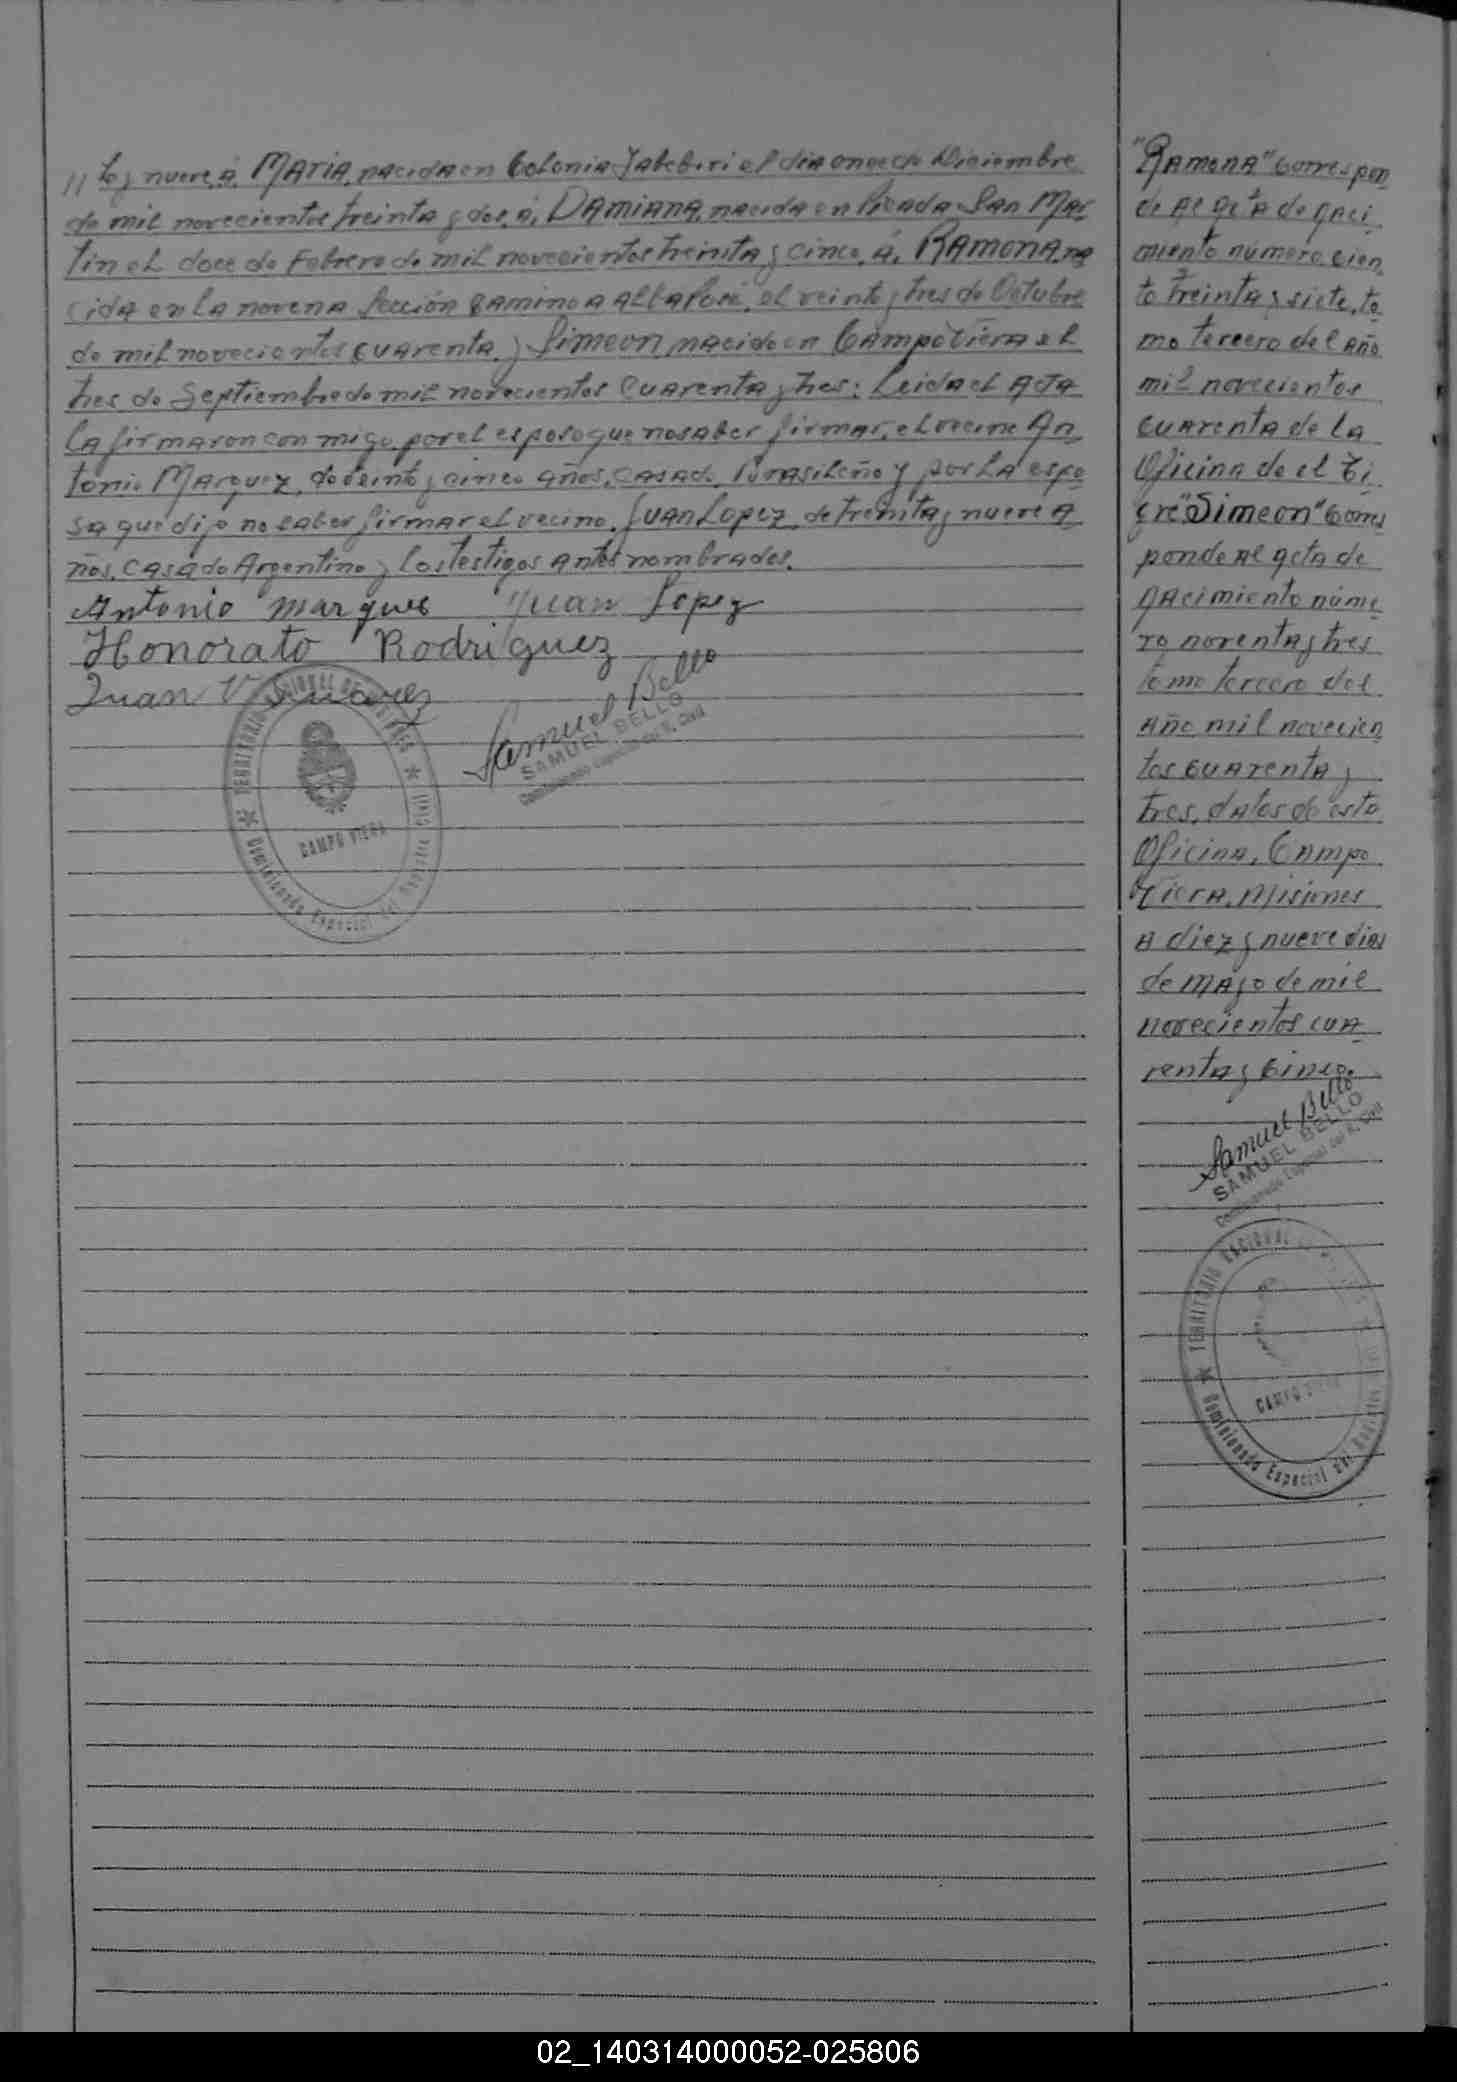 // te y nueve, á, MARIA, nacida en Colonia Yabebiri el dia once de Diciembre
de mil novecientos treinta y dos, á, DAMIANA, nacida en Picada San Mar
tin el doce de Febrero de mil novecientos treinta y cinco, á, RAMONA, na
cida en la novena Sección camino a el
veinte y tres de Octubre
de mil novecientos cuarenta, y Simeon nacido en Campo Viera el
tres de Septiembre de mil novecientos cuarenta y tres: Leida el Acta
la firmaron con migo, por el esposo que no saber firmar, el vecino An
tonio Marquez, de veinte y cinco años, casado, Brasileño y por la espo
sa que dijo no saber firmar el vecino, Juan Lopez, de treinta y nueve a
ños, casado Argentino y los testigos antes nombrados.
Antonio marques Juan Lopez
Honorato Rodriguez
Juan V. Suarez
Samuel Bello
SAMUEL BELLO
Comisionado Especial del R. Civil
TERRITORIO NACIONAL DE MISIONES
CAMPO VIERA
Comisionado Especial del Registro Civil
"RAMONA" Corres pon
de al acta de naci
miento número, cien
to treinta y siete, to
mo tercero del año
mil novecientos
cuarenta de la
Oficina de el Ti
gre "Simeon" Corres
ponde al acta de
nacimiento núme
ro noventa y tres
tomo tercero del
año mil novecien
tos cuarenta y
tres, datos de esta
Oficina, Campo
Viera, Misiones
a diez y nueve dias
de mayo de mil
novecientos cua
renta y cinco.
Samuel Bello
SAMUEL BELLO
Comisionado Especial del R. Civil
TERRITORIO NACIONAL
CAMPO VIERA
Comisionado Especial del Registro
02_140314000052-025806